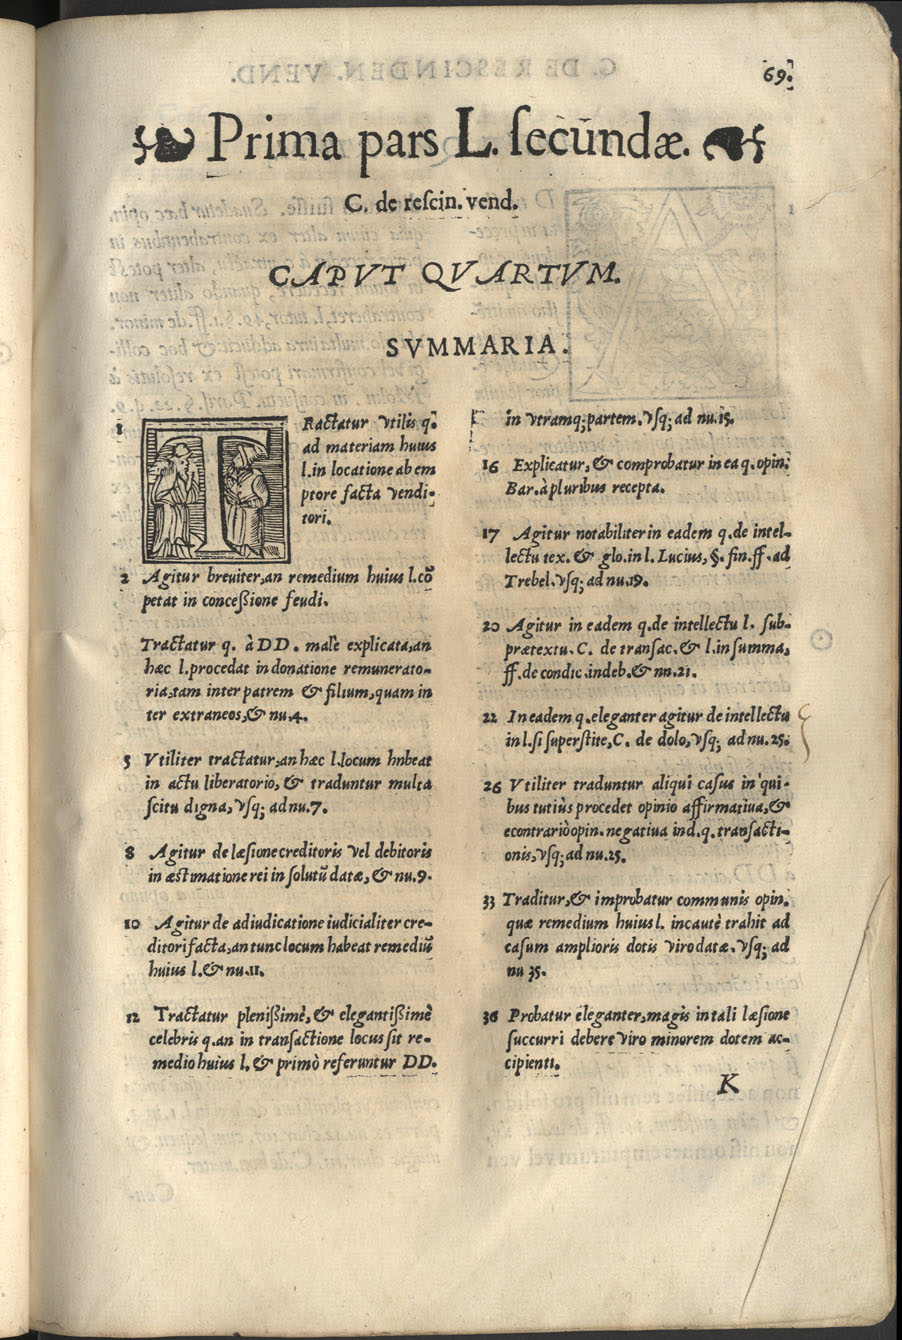 69.
Prima pars L. ſecūndæ.
C. de reſcin. vend.
CAPVT QVARTVM.
SVMMARIA.
1 TRactatur vtilis q.
ad materiam huius
l. in locatione ab em
ptore facta vendi-
tori.
2 Agitur breuiter, an remedium huius l. cō
petat in conceßione feudi.
Tractatur q. à DD. male explicata, an
hæc l. procedat in donatione remunerato-
ria, tam inter patrem & filium, quam in
ter extraneos, & nu. 4.
5 Vtiliter tractatur, an hæc l. locum hnbeat
in actu liberatorio, & traduntur multa
ſcitu digna, vſq; ad nu. 7.
8 Agitur de læſione creditoris vel debitoris
in æſtimatione rei in ſolutū datæ, & nu. 9.
10 Agitur de adiudicatione iudicialiter cre-
ditori facta, an tunc locum habeat remediū
huius l. & nu. 11.
12 Tractatur pleniſsimè, & elegantißimè
celebris q. an in tranſactione locus ſit re-
medio huius l. & primò referuntur DD.
in vtramq; partem. vſq; ad nu. 15.
16 Explicatur, & comprobatur in ea q. opin.
Bar. à pluribus recepta.
17 Agitur notabiliter in eadem q. de intel-
lectu tex. & glo. in l. Lucius, §. fin. ff. ad
Trebel. vſq; ad nu. 19.
20 Agitur in eadem q. de intellectu l. ſub-
prætextu. C. de tranſac. & l. in ſumma,
ff. de condic. indeb. & nn. 21.
22 In eadem q. eleganter agitur de intellectu
in l. ſi ſuperſtite, C. de dolo, vſq; ad nu. 25.
26 Vtiliter traduntur aliqui caſus in qui-
bus tutiùs procedet opinio affirmatiua, &
econtrariò opin. negatiua in d. q. tranſacti-
onis, vſq; ad nu. 25.
33 Traditur, & improbatur communis opin.
quæ remedium huius l. incautè trahit ad
caſum amplioris dotis viro datæ. vſq; ad
nu 35.
36 Probatur eleganter, magis in tali læſione
ſuccurri debere viro minorem dotem ac-
cipienti.
K